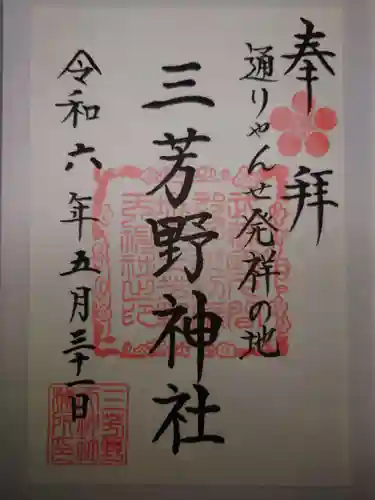 奉拝
通りゃんせ発祥の地
三芳野神社
令和六年五月三十一日